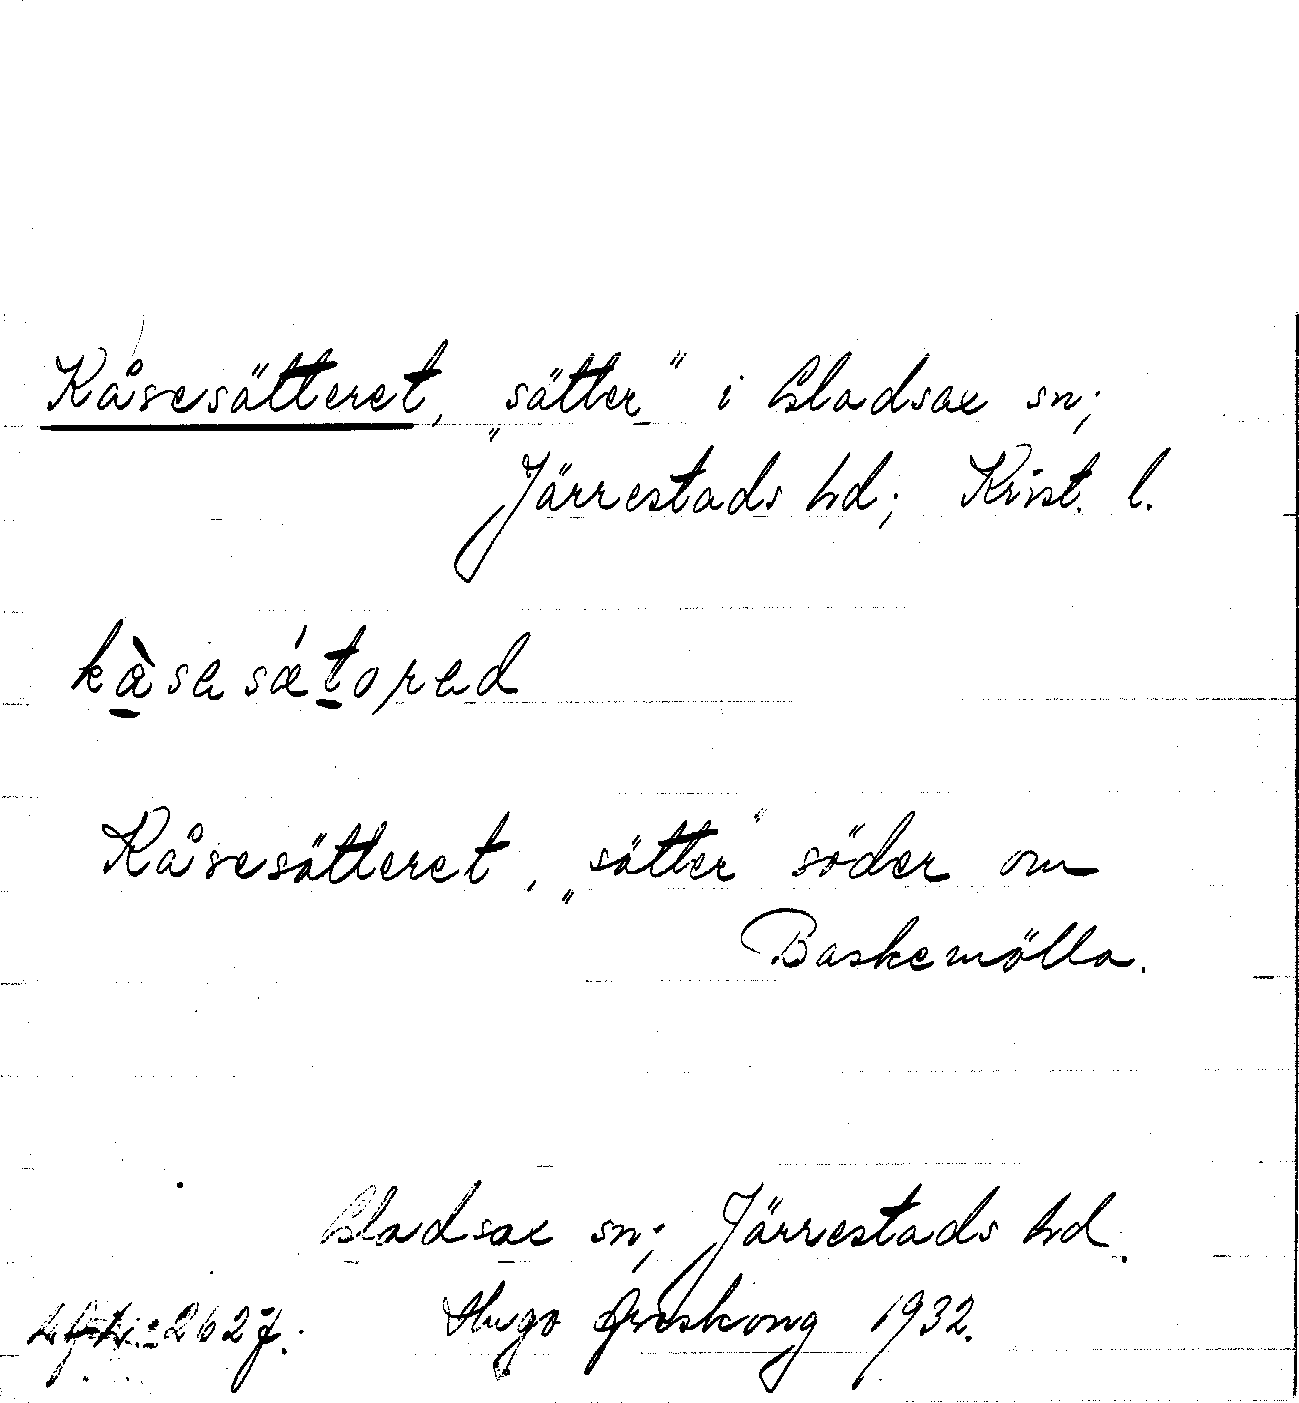 Kåsesätteret, „sätter" i Gladsax sn;
Järrestads hd; Krist. l.
kåsesätteret, „sätter" söder om
Baskemölla.
Gladsax sn; Järrestads hd.
Hugo Areskoug 1932.
2627.